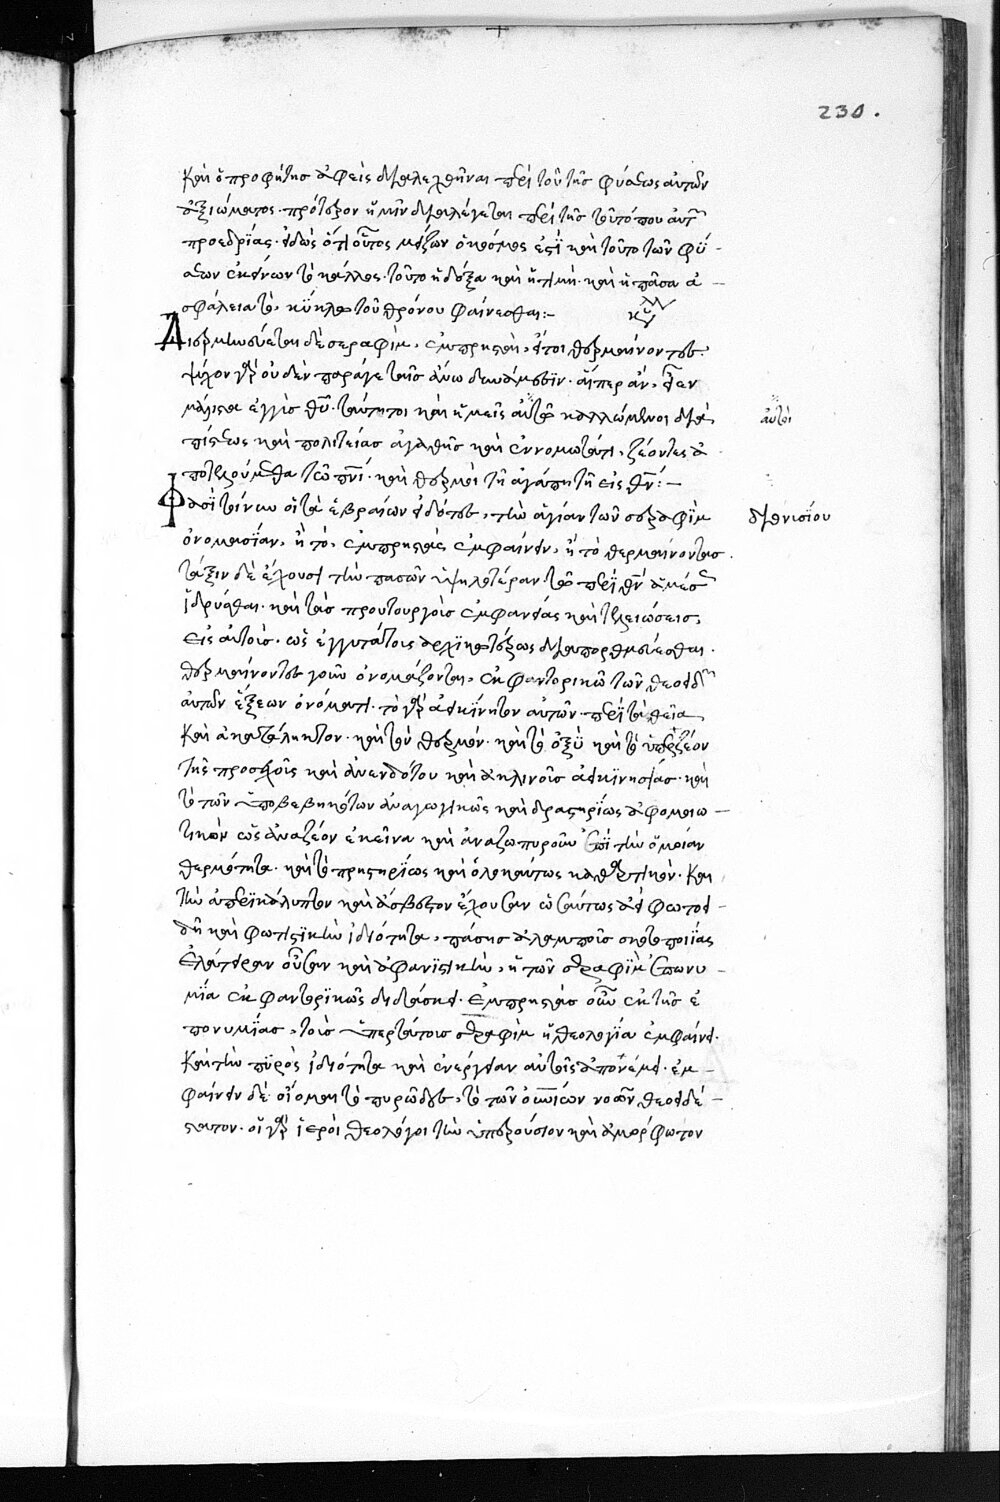 230.
καὶ ὁ προφήτης ἀφεὶς διαλεχθῆναι περὶ τοῦ τῆς φύσεως αὐτῶν
ἀξιώματος· πρότερον ἡμῖν διαλέγεται περὶ τῆς τοῦ τόπου αὐτῶν
προεδρίας· εἰδὼς ὅτι οὗτος μείζων ὁ κόσμος ἐστὶ καὶ τοῦτο τῶν φύ-
σεων ἐκείνων τὸ κάλλος· τοῦτο ἡ δόξα καὶ ἡ τιμή· καὶ ἡ πᾶσα ἀ-
σφάλεια τὸ, κύκλω τοῦ θρόνου φαίνεσθαι:-
Διερμηνεύεται δὲ σεραφὶμ, ἐμπρησταὶ, ἤτοι θερμαίνοντες·
ψῦχον γὰρ οὐδὲν παρὰ γε ταῖς ἄνω δυνάμεσιν· αἵπερ ἂν, εἶεν
μάλιστα ἐγγὺς θεοῦ· ταύτητοι καὶ ἡμεῖς αὐτῶ κολλώμενοι διὰ
αὐταὶ
πίστεως καὶ πολιτείας ἀγαθῆς καὶ ἐννομωτάτης, ζέοντες ἀ
ποτελούμεθα τῶ πνι· καὶ θερμοὶ τῇ ἀγάπῃ τῇ εἰς θν:-
Φασὶ τοίνυν οἱ τὰ ἑβραίων εἰδότες, τὴν ἁγίαν τῶν σεραφὶμ
διονυσίου
ὀνομασίαν, ἢ τὸ, ἐμπρηστὰς ἐμφαίνειν, ἢ τὸ θερμαίνοντας.
τάξιν δὲ ἔχουσι τὴν πασῶν ὑψηλοτέραν τῶ περὶ θν ἀμέσως
ἱδρύσθαι· καὶ τὰς πρωτουργοὺς ἐμφανείας καὶ τελειώσεις
εἰς αὐτοὺς, ὡς ἐγγυτάτοις ἀρχικωτέρως διαπορθμεύεσθαι.
θερμαίνοντες γοῦν ὀνομάζονται, ἐκφαντορικῶ τῶν θεοειδῶν
αὐτῶν ἕξεων ὀνόματι· τὸ γὰρ ἀεικίνητον αὐτῶν· περὶ τὰ θεῖα
καὶ ἀκατάληκτον· καὶ τὸ θερμὸν· καὶ τὸ ὀξὺ καὶ τὸ ὑπερζέον
τῆς προσεχοῦς καὶ ἀνενδότου καὶ ἀκλινοῦς ἀεικινησίας· καὶ
τὸ τῶν ὑποβεβηκότων ἀναγωγικῶς καὶ δραστηρίως ἀφομοιω-
τικὸν ὡς ἀναζέον ἐκεῖνα καὶ ἀναζωπυροῦν ἐπὶ τὴν ὁμοίαν
θερμότητα· καὶ τὸ πρηστηρίως καὶ ὁλοκαύτως καθαρτικόν· καὶ
τὴν ἀπερικάλυπτον καὶ ἄσβεστον ἔχουσαν ὡσαύτως ἀεὶ φωτοει-
δῆ καὶ φωτιστικὴν ἰδιότητα, πάσης ἀλαμποῦς σκοτοποιΐας
ἐλάτειραν οὖσαν καὶ ἀφανιστικὴν, ἡ τῶν σεραφὶμ ἐπωνυ-
μία ἐκφαντορικῶς διδάσκει. Ἐμπρηστὰς οὖν ἐκ τῆς ἐ
πονυμίας, τοὺς ὑπερτάτους σεραφὶμ ἡ θεολογία ἐμφαίνει.
καὶ τὴν πυρὸς ἰδιότητα καὶ ἐνέργειαν αὐτοῖς ἀπονέμει· ἐμ-
φαίνειν δὲ οἴομαι τὸ πυρῶδες, τὸ τῶν οὐνίων νοῶν θεοειδέ-
στατον· οἱ γὰρ ἱεροὶ θεολόγοι τὴν ὑπερούσιον καὶ ἀμόρφωτον